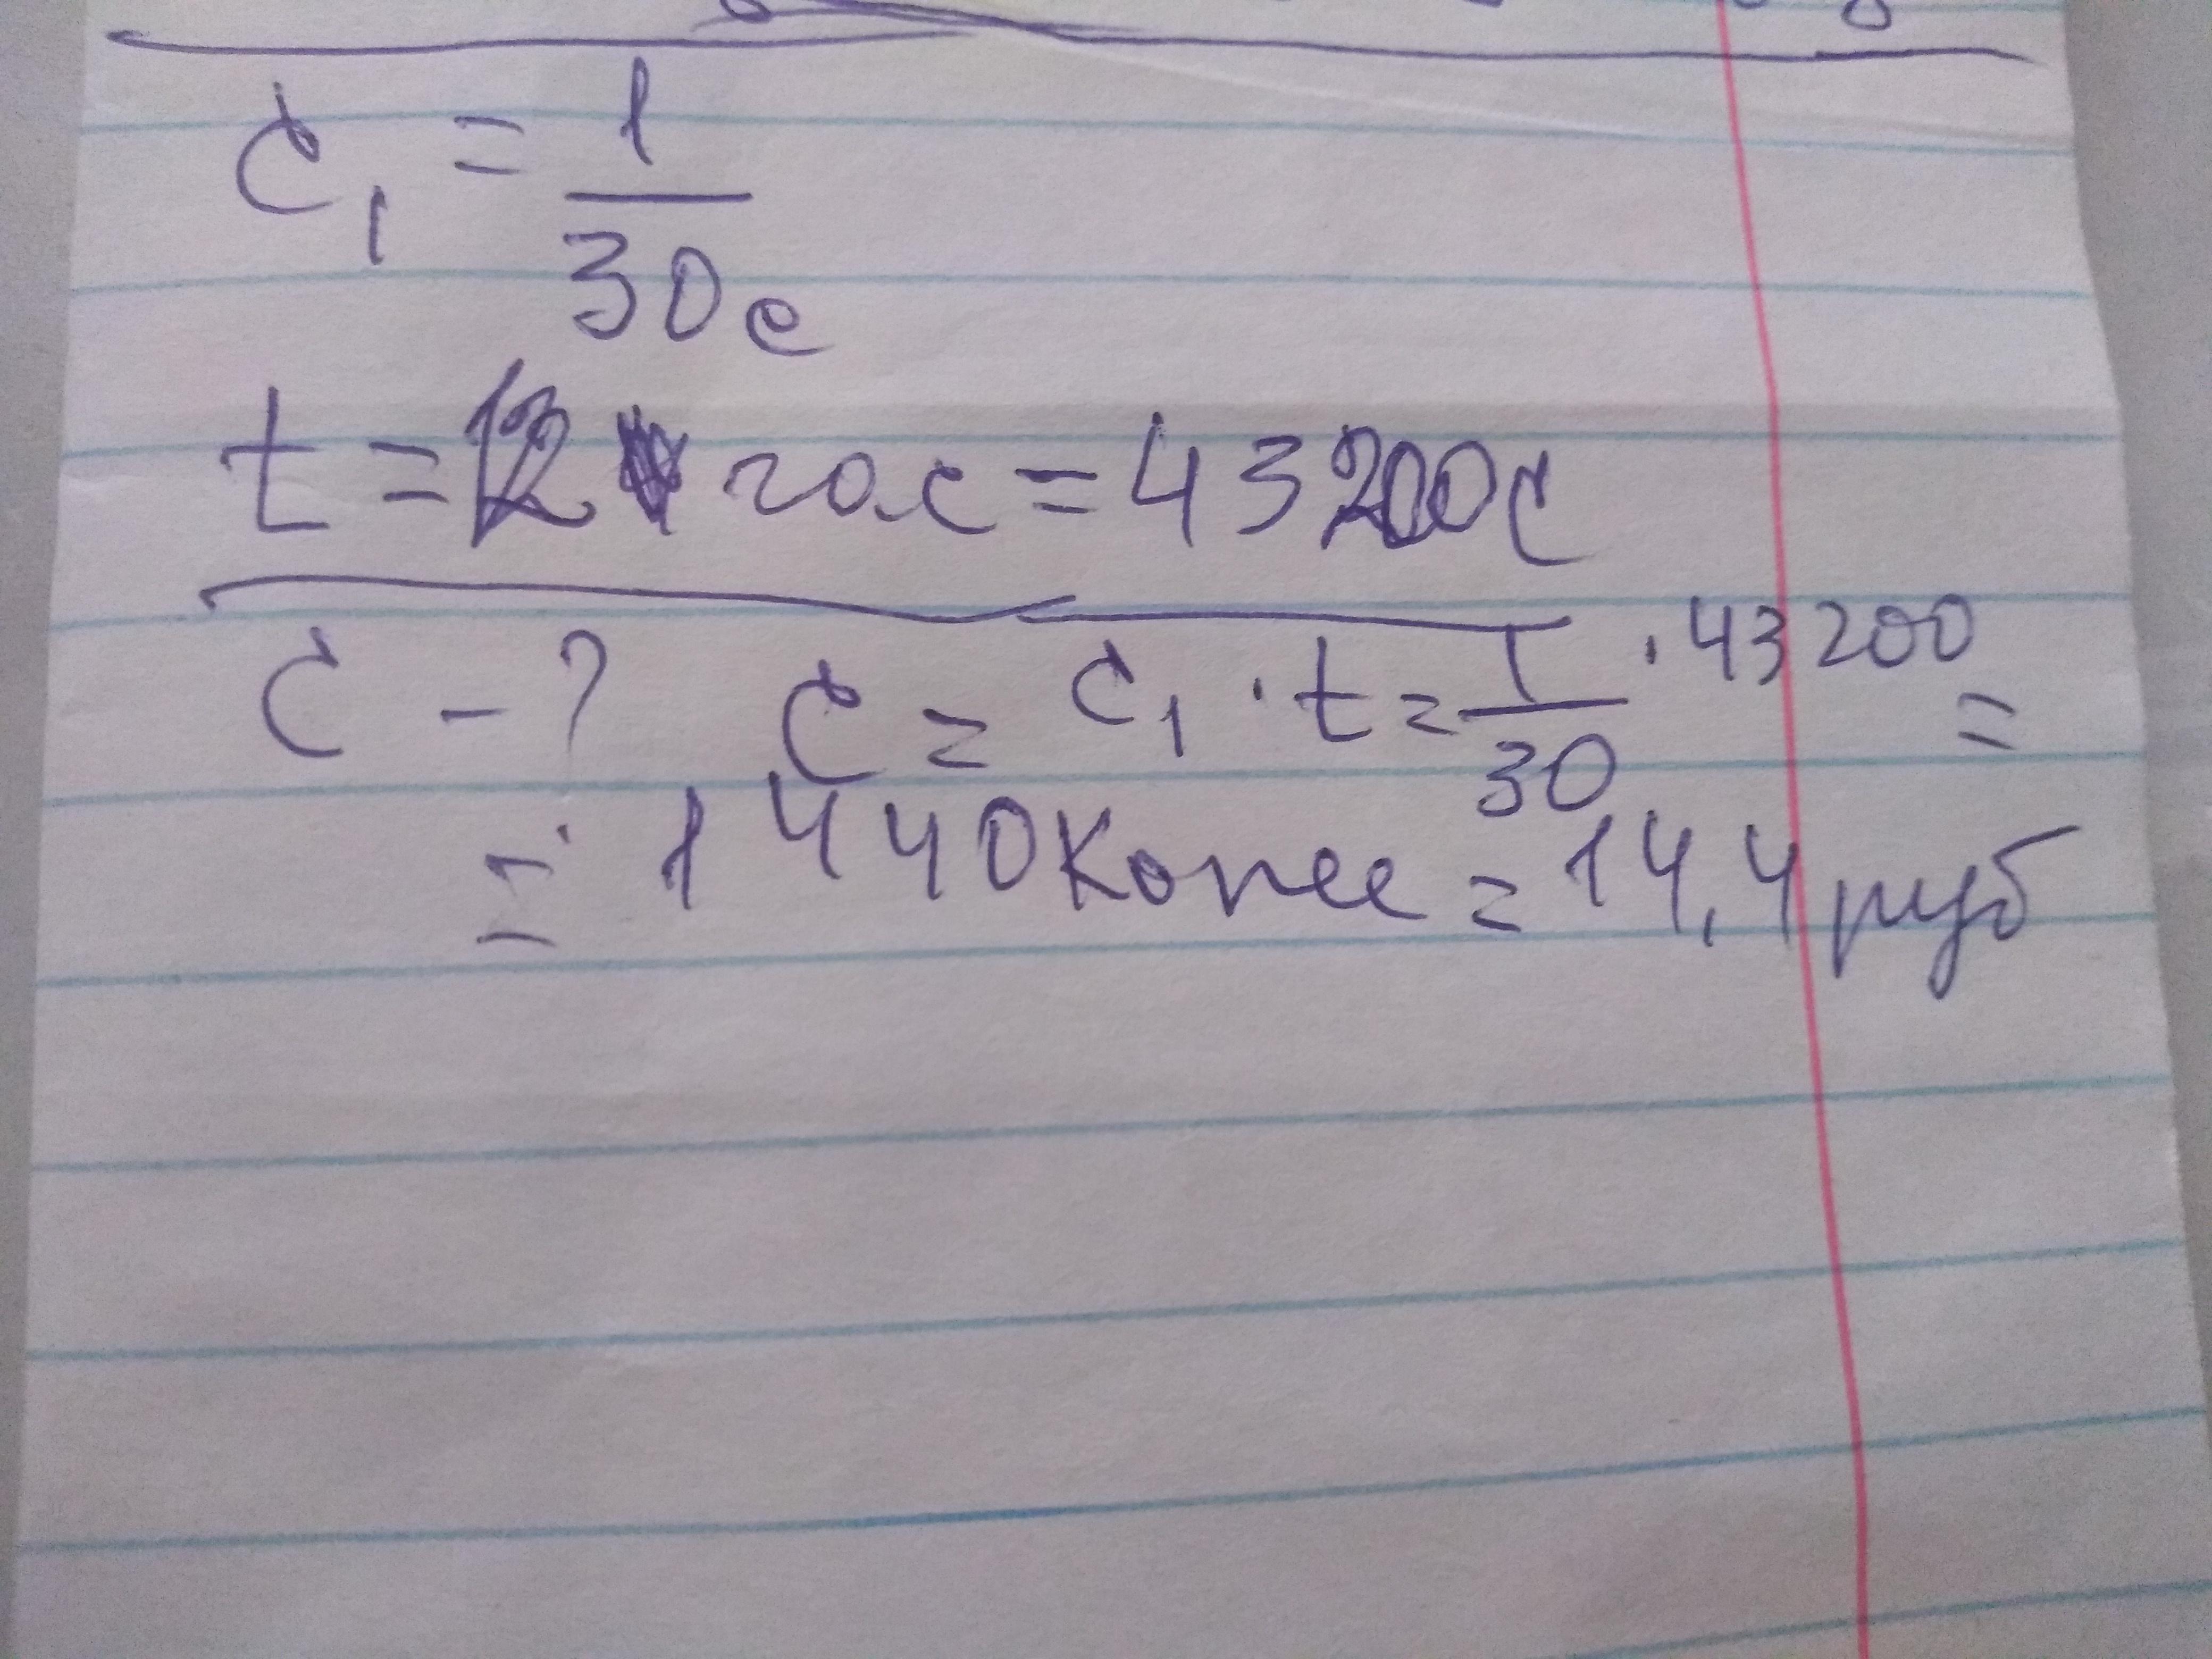 C₁ = 1/30 c
t = 12 час = 43200 с
C - ? C = C₁ · t = 1/30 · 43200 =
= 1440 копее = 14,4 руб